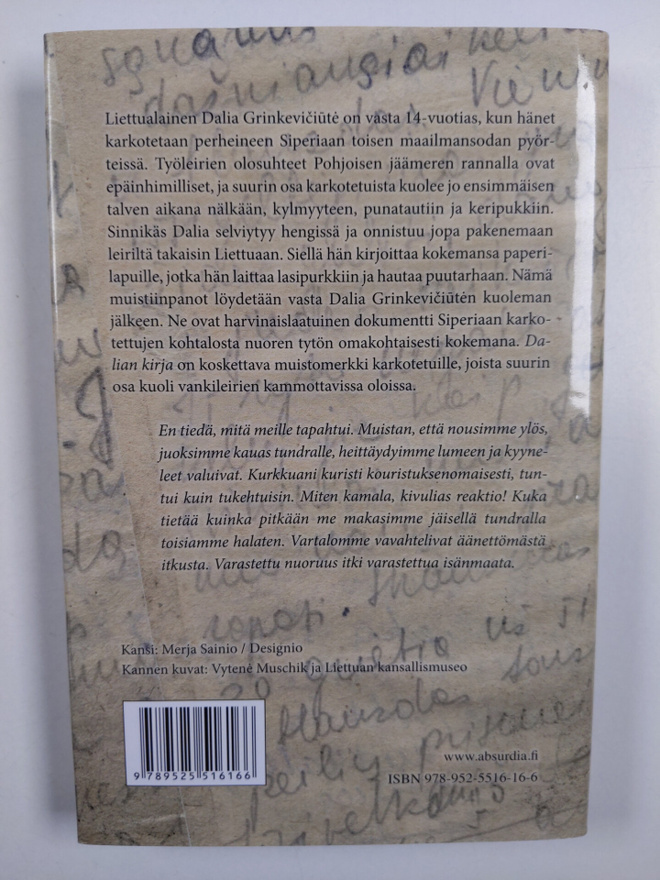 sąnarius
Liettualainen Dalia Grinkevičiūtė on vasta 14-vuotias, kun hänet
karkotetaan perheineen Siperiaan toisen maailmansodan pyör-
teissä. Työleirien olosuhteet Pohjoisen jäämeren rannalla ovat
epäinhimilliset, ja suurin osa karkotetuista kuolee jo ensimmäisen
talven aikana nälkään, kylmyyteen, punatautiin ja keripukkiin.
Sinnikäs Dalia selviytyy hengissä ja onnistuu jopa pakenemaan
leiriltä takaisin Liettuaan. Siellä hän kirjoittaa kokemansa paperi-
lapuille, jotka hän laittaa lasipurkkiin ja hautaa puutarhaan. Nämä
muistiinpanot löydetään vasta Dalia Grinkevičiūtėn kuoleman
jälkeen. Ne ovat harvinaislaatuinen dokumentti Siperiaan karko-
tettujen kohtalosta nuoren tytön omakohtaisesti kokemana. Da-
lian kirja on koskettava muistomerkki karkotetuille, joista suurin
osa kuoli vankileirien kammottavissa oloissa.
En tiedä, mitä meille tapahtui. Muistan, että nousimme ylös,
juoksimme kauas tundralle, heittäydyimme lumeen ja kyyne-
leet valuivat. Kurkkuani kuristi kouristuksenomaisesti, tun-
tui kuin tukehtuisin. Miten kamala, kivulias reaktio! Kuka
tietää kuinka pitkään me makasimme jäisellä tundralla
toisiamme halaten. Vartalomme vavahtelivat äänettömästä
itkusta. Varastettu nuoruus itki varastettua isänmaata.
Kansi: Merja Sainio / Designio
Kannen kuvat: Vytenė Muschik ja Liettuan kansallismuseo
9 789525 516166
www.absurdia.fi
ISBN 978-952-5516-16-6